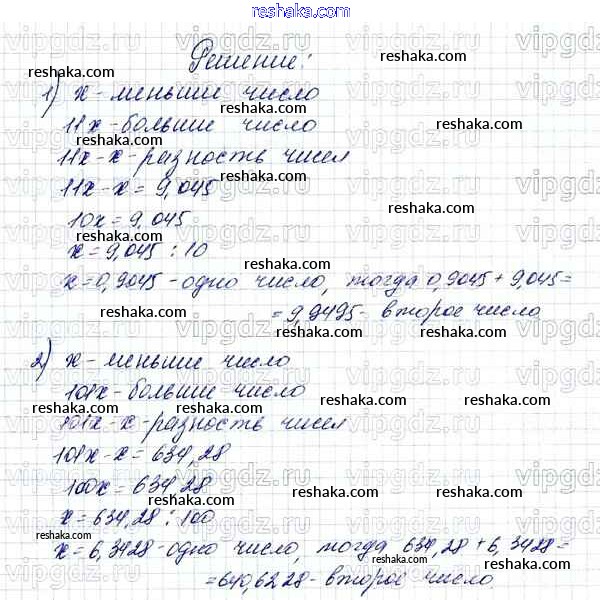 reshaka.com
Решение:
1) x - меньше число
11x - больше число
11x - x - разность чисел
11x - x = 9,045
10x = 9,045
x = 9,045 : 10
x = 0,9045 - одно число, тогда 0,9045 + 9,045 =
= 9,9495 - второе число
2) x - меньше число
101x - больше число
101x - x - разность чисел
101x - x = 634,28
100x = 634,28
x = 634,28 : 100
x = 6,3428 - одно число, тогда 634,28 + 6,3428 =
= 640,6228 - второе число.